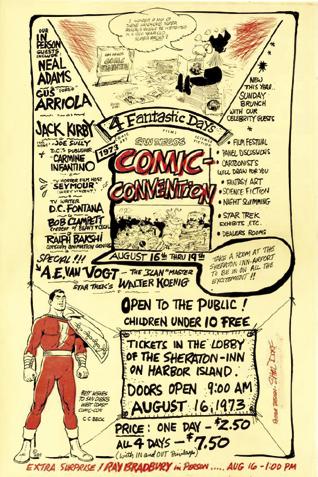 OUR
IN
PERSON
GUESTS
INCLUDE:
NEAL
ADAMS
GUS
ARRIOLA
JACK KIRBY
JOE SULLY
D.C.'S PUBLISHER
CARMINE
INFANTINO
TV HORROR FILM HOST
SEYMOUR
TV WRITER
D.C. FONTANA
BOB CLAMPETT
CREATOR OF BEANY & CECIL
RALPH BAKSHI
SPECIAL!!!
A.E. VAN VOGT - THE "SCAN" MASTER
STAR TREK'S WALTER KOENIG
4 FANTASTIC DAYS
FILMS
1973
SAN DIEGO'S
COMIC-
CONVENTION
AUGUST 16TH THRU 19TH
NEW
THIS YEAR..
SUNDAY
BRUNCH
WITH OUR
CELEBRITY GUESTS
• FILM FESTIVAL
• PANEL DISCUSSIONS
• CARTOONISTS
WILL DRAW FOR YOU
• FANTASY ART
• SCIENCE FICTION
• NIGHT SWIMMING
• STAR TREK
EXHIBITS, ETC.
• DEALERS ROOMS
TAKE A ROOM AT THE
SHERATON INN-AIRPORT
TO BE IN ON ALL THE
EXCITEMENT!!
OPEN TO THE PUBLIC!
CHILDREN UNDER 10 FREE
TICKETS IN THE LOBBY
OF THE SHERATON-INN
ON HARBOR ISLAND.
DOORS OPEN 9:00 AM
AUGUST 16, 1973
PRICE: ONE DAY - $2.50
ALL 4 DAYS - $7.50
(with IN and OUT Privileges)
BEST WISHES
TO SAN DIEGO'S
WEST COAST
COMIC-CON
C.C. BECK
EXTRA SURPRISE! RAY BRADBURY in Person.... AUG 16 - 1:00 PM